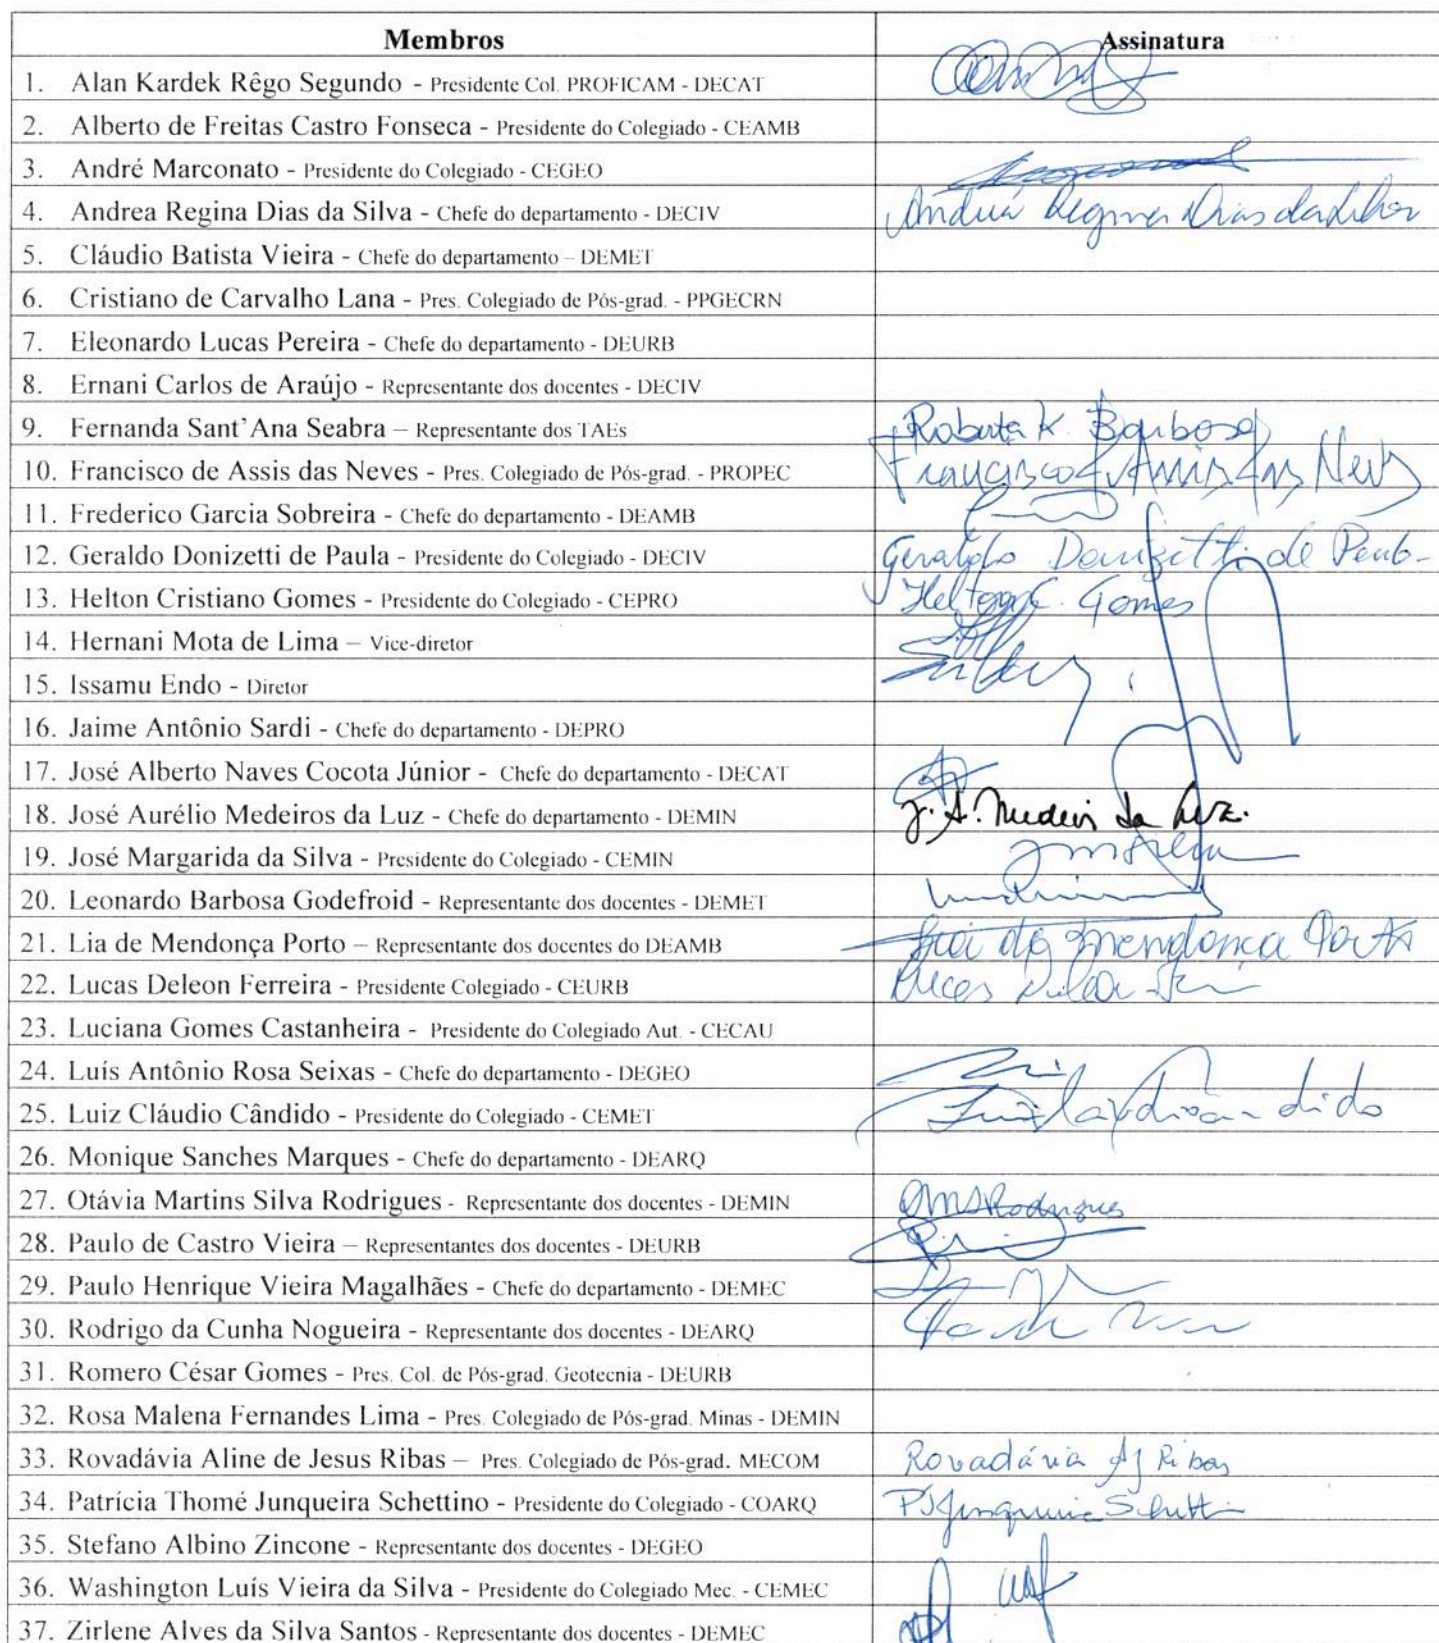 Membros Assinatura
1. Alan Kardek Rêgo Segundo - Presidente Col. PROFICAM - DECAT
2. Alberto de Freitas Castro Fonseca - Presidente do Colegiado - CEAMB
3. André Marconato - Presidente do Colegiado - CEGEO
4. Andrea Regina Dias da Silva - Chefe do departamento - DECIV Andréa Regina Dias da Silva
5. Cláudio Batista Vieira - Chefe do departamento – DEMET
6. Cristiano de Carvalho Lana - Pres. Colegiado de Pós-grad. - PPGECRN
7. Eleonardo Lucas Pereira - Chefe do departamento - DEURB
8. Ernani Carlos de Araújo - Representante dos docentes - DECIV
9. Fernanda Sant'Ana Seabra – Representante dos TAEs Roberta K. Barbosa
10. Francisco de Assis das Neves - Pres. Colegiado de Pós-grad. - PROPEC Francisco de Assis das Neves
11. Frederico Garcia Sobreira - Chefe do departamento - DEAMB
12. Geraldo Donizetti de Paula - Presidente do Colegiado - DECIV Geraldo Donizetti de Paula
13. Helton Cristiano Gomes - Presidente do Colegiado - CEPRO Helton C. Gomes
14. Hernani Mota de Lima – Vice-diretor
15. Issamu Endo - Diretor
16. Jaime Antônio Sardi - Chefe do departamento - DEPRO
17. José Alberto Naves Cocota Júnior - Chefe do departamento - DECAT
18. José Aurélio Medeiros da Luz - Chefe do departamento - DEMIN J. A. Medeiros da Luz.
19. José Margarida da Silva - Presidente do Colegiado - CEMIN
20. Leonardo Barbosa Godefroid - Representante dos docentes - DEMET
21. Lia de Mendonça Porto – Representante dos docentes do DEAMB Lia de Mendonça Porto
22. Lucas Deleon Ferreira - Presidente Colegiado - CEURB Lucas Deleon
23. Luciana Gomes Castanheira - Presidente do Colegiado Aut. - CECAU
24. Luís Antônio Rosa Seixas - Chefe do departamento - DEGEO
25. Luiz Cláudio Cândido - Presidente do Colegiado - CEMET Luiz Cláudio Cândido
26. Monique Sanches Marques - Chefe do departamento - DEARQ
27. Otávia Martins Silva Rodrigues - Representante dos docentes - DEMIN OMSRodrigues
28. Paulo de Castro Vieira – Representantes dos docentes - DEURB
29. Paulo Henrique Vieira Magalhães - Chefe do departamento - DEMEC
30. Rodrigo da Cunha Nogueira - Representante dos docentes - DEARQ
31. Romero César Gomes - Pres. Col. de Pós-grad. Geotecnia - DEURB
32. Rosa Malena Fernandes Lima - Pres. Colegiado de Pós-grad. Minas - DEMIN
33. Rovadávia Aline de Jesus Ribas – Pres. Colegiado de Pós-grad. MECOM Rovadávia AJ Ribas
34. Patrícia Thomé Junqueira Schettino - Presidente do Colegiado - COARQ PTJunqueira Schetti
35. Stefano Albino Zincone - Representante dos docentes - DEGEO
36. Washington Luís Vieira da Silva - Presidente do Colegiado Mec. - CEMEC
37. Zirlene Alves da Silva Santos - Representante dos docentes - DEMEC